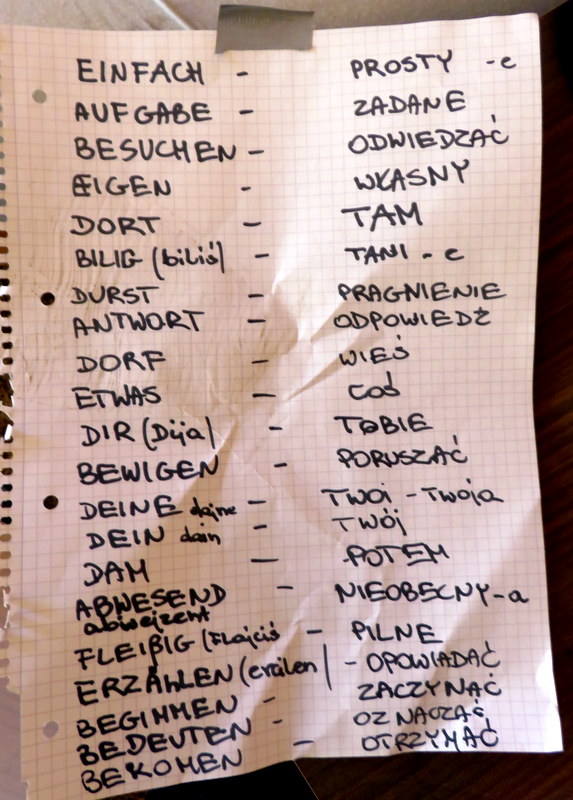 EINFACH - PROSTY -e
AUFGABE - ZADANE
BESUCHEN - ODWIEDZAĆ
EIGEN - WŁASNY
DORT - TAM
BILIG (biliś) - TANI - e
DURST - PRAGNIENIE
ANTWORT - ODPOWIEDŹ
DORF - WIEŚ
ETWAS - COŚ
DIR (Dija) - TOBIE
BEWIGEN - PORUSZAĆ
DEINE dajne - TWOI - TWOJA
DEIN dain - TWÓJ
DAM - POTEM
ABWESEND - NIEOBECNY-a
abwejzent
FLEIßIG (Flajciś - PILNE
ERZÄHLEN (ercilen) - OPOWIADAĆ
BEGINMEN - ZACZYNAĆ
BEDEUTEN - OZNACZAĆ
BEKOMEN - OTRZYMAĆ